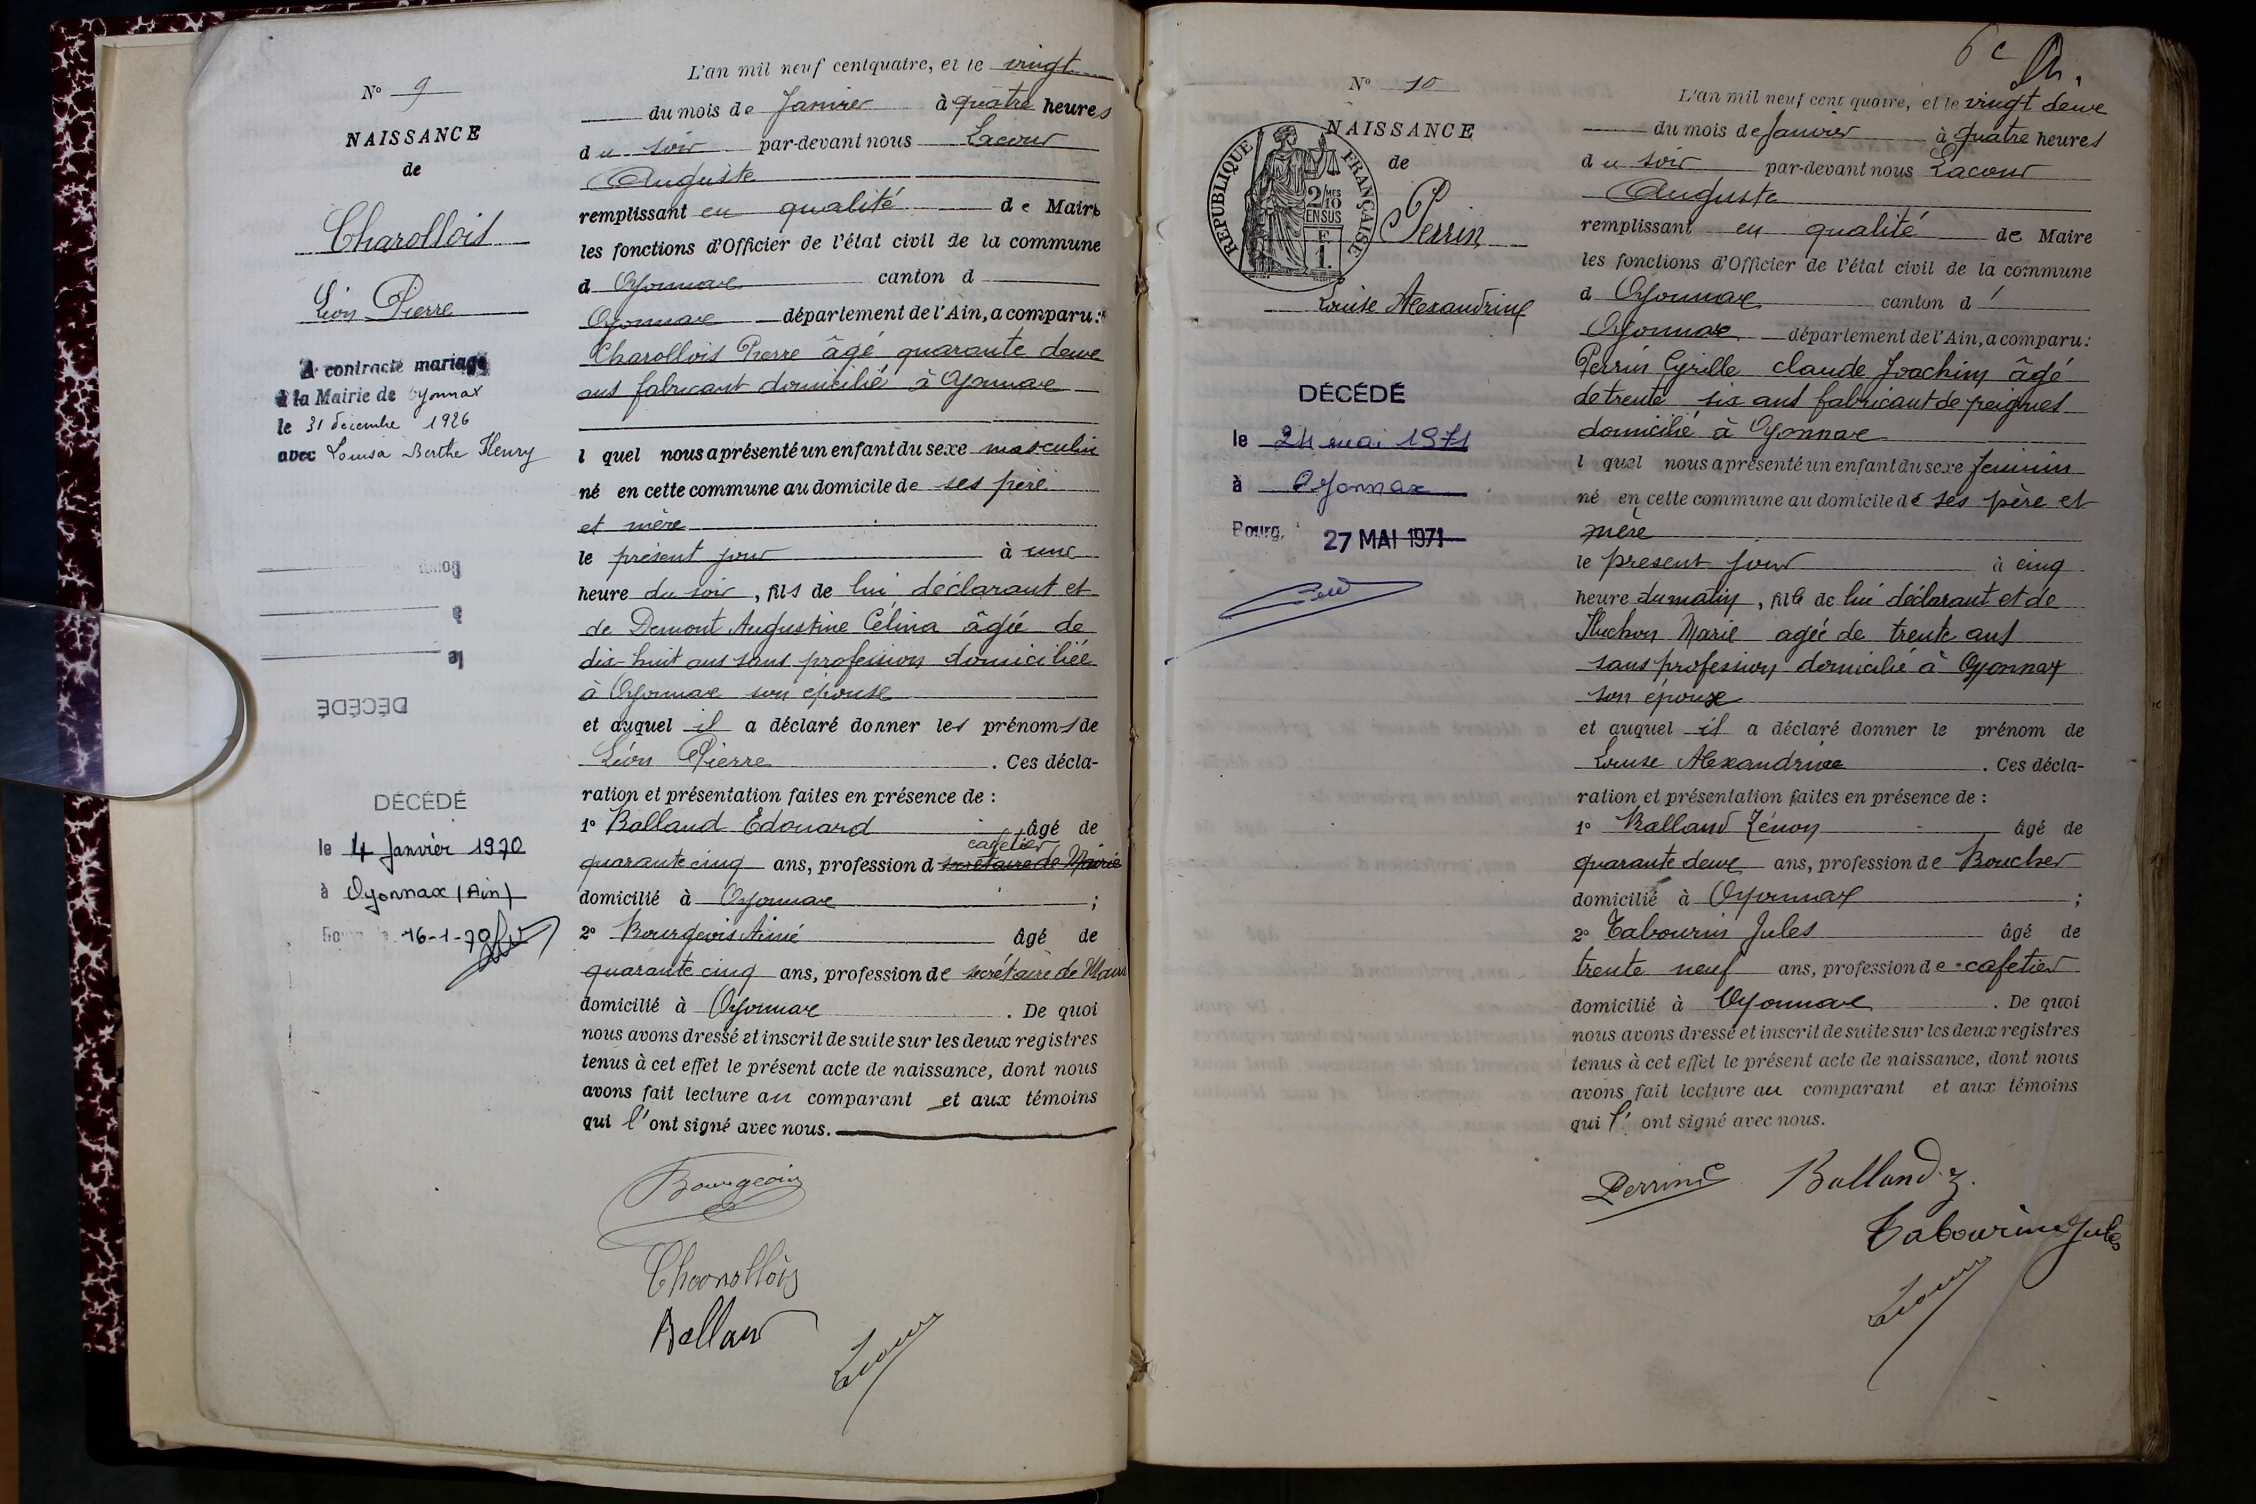 N° 9
NAISSANCE
de
Charollois
Léon Pierre
A contracté mariage
à la Mairie de Oyonnax
le 31 décembre 1926
avec Louisa Berthe Henry
DÉCÉDÉ
le 4 Janvier 1970
à Oyonnax (Ain)
16-1-70
L'an mil neuf cent quatre, et le vingt
du mois de Janvier à quatre heures
du soir par-devant nous Lacour
Auguste
remplissant en qualité de Maire
les fonctions d'Officier de l'état civil de la commune
d Oyonnax canton d
Oyonnax département de l'Ain, a comparu :
Charollois Pierre âgé quarante deux
ans fabricant domicilié à Oyonnax
l quel nous a présenté un enfant du sexe masculin
né en cette commune au domicile de ses père
et mère
le présent jour à une
heure du soir, fils de lui déclarant et
de Demont Augustine Célina âgée de
dix-huit ans sans profession domiciliée
à Oyonnax son épouse
et auquel il a déclaré donner les prénoms de
Léon Pierre . Ces décla-
ration et présentation faites en présence de :
1° Balland Édouard âgé de
cafetier
quarante cinq ans, profession d secrétaire de Mairie
domicilié à Oyonnax ;
2° Bourgeois Aimé âgé de
quarante cinq ans, profession de secrétaire de Mairie
domicilié à Oyonnax . De quoi
nous avons dressé et inscrit de suite sur les deux registres
tenus à cet effet le présent acte de naissance, dont nous
avons fait lecture au comparant et aux témoins
qui l'ont signé avec nous.
Bourgeois
Charollois
Balland
Lacour
6e
N° 10
NAISSANCE
de
RÉPUBLIQUE FRANÇAISE
2/10
EN SUS
F.
1.
Perrin
Louise Alexandrine
DÉCÉDÉ
le 24 mai 1971
à Oyonnax
Bourg, 27 MAI 1971
L'an mil neuf cent quatre, et le vingt deux
du mois de Janvier à quatre heures
du soir par-devant nous Lacour
Auguste
remplissant en qualité de Maire
les fonctions d'Officier de l'état civil de la commune
d Oyonnax canton d'
Oyonnax département de l'Ain, a comparu :
Perrin Cyrille claude Joachim âgé
de trente six ans fabricant de peignes
domicilié à Oyonnax
l quel nous a présenté un enfant du sexe feminin
né en cette commune au domicile de ses père et
mère
le présent jour à cinq
heure du matin, fille de lui déclarant et de
Huchon Marie agée de trente ans
sans profession domicilié à Oyonnax
son épouse
et auquel il a déclaré donner le prénom de
Louise Alexandrine . Ces décla-
ration et présentation faites en présence de :
1° Balland Zénon âgé de
quarante deux ans, profession de Boucher
domicilié à Oyonnax ;
2° Tabourin Jules âgé de
trente neuf ans, profession de cafetier
domicilié à Oyonnax . De quoi
nous avons dressé et inscrit de suite sur les deux registres
tenus à cet effet le présent acte de naissance, dont nous
avons fait lecture au comparant et aux témoins
qui l' ont signé avec nous.
Perrin C Balland. Z.
Tabourin Jules
Lacour